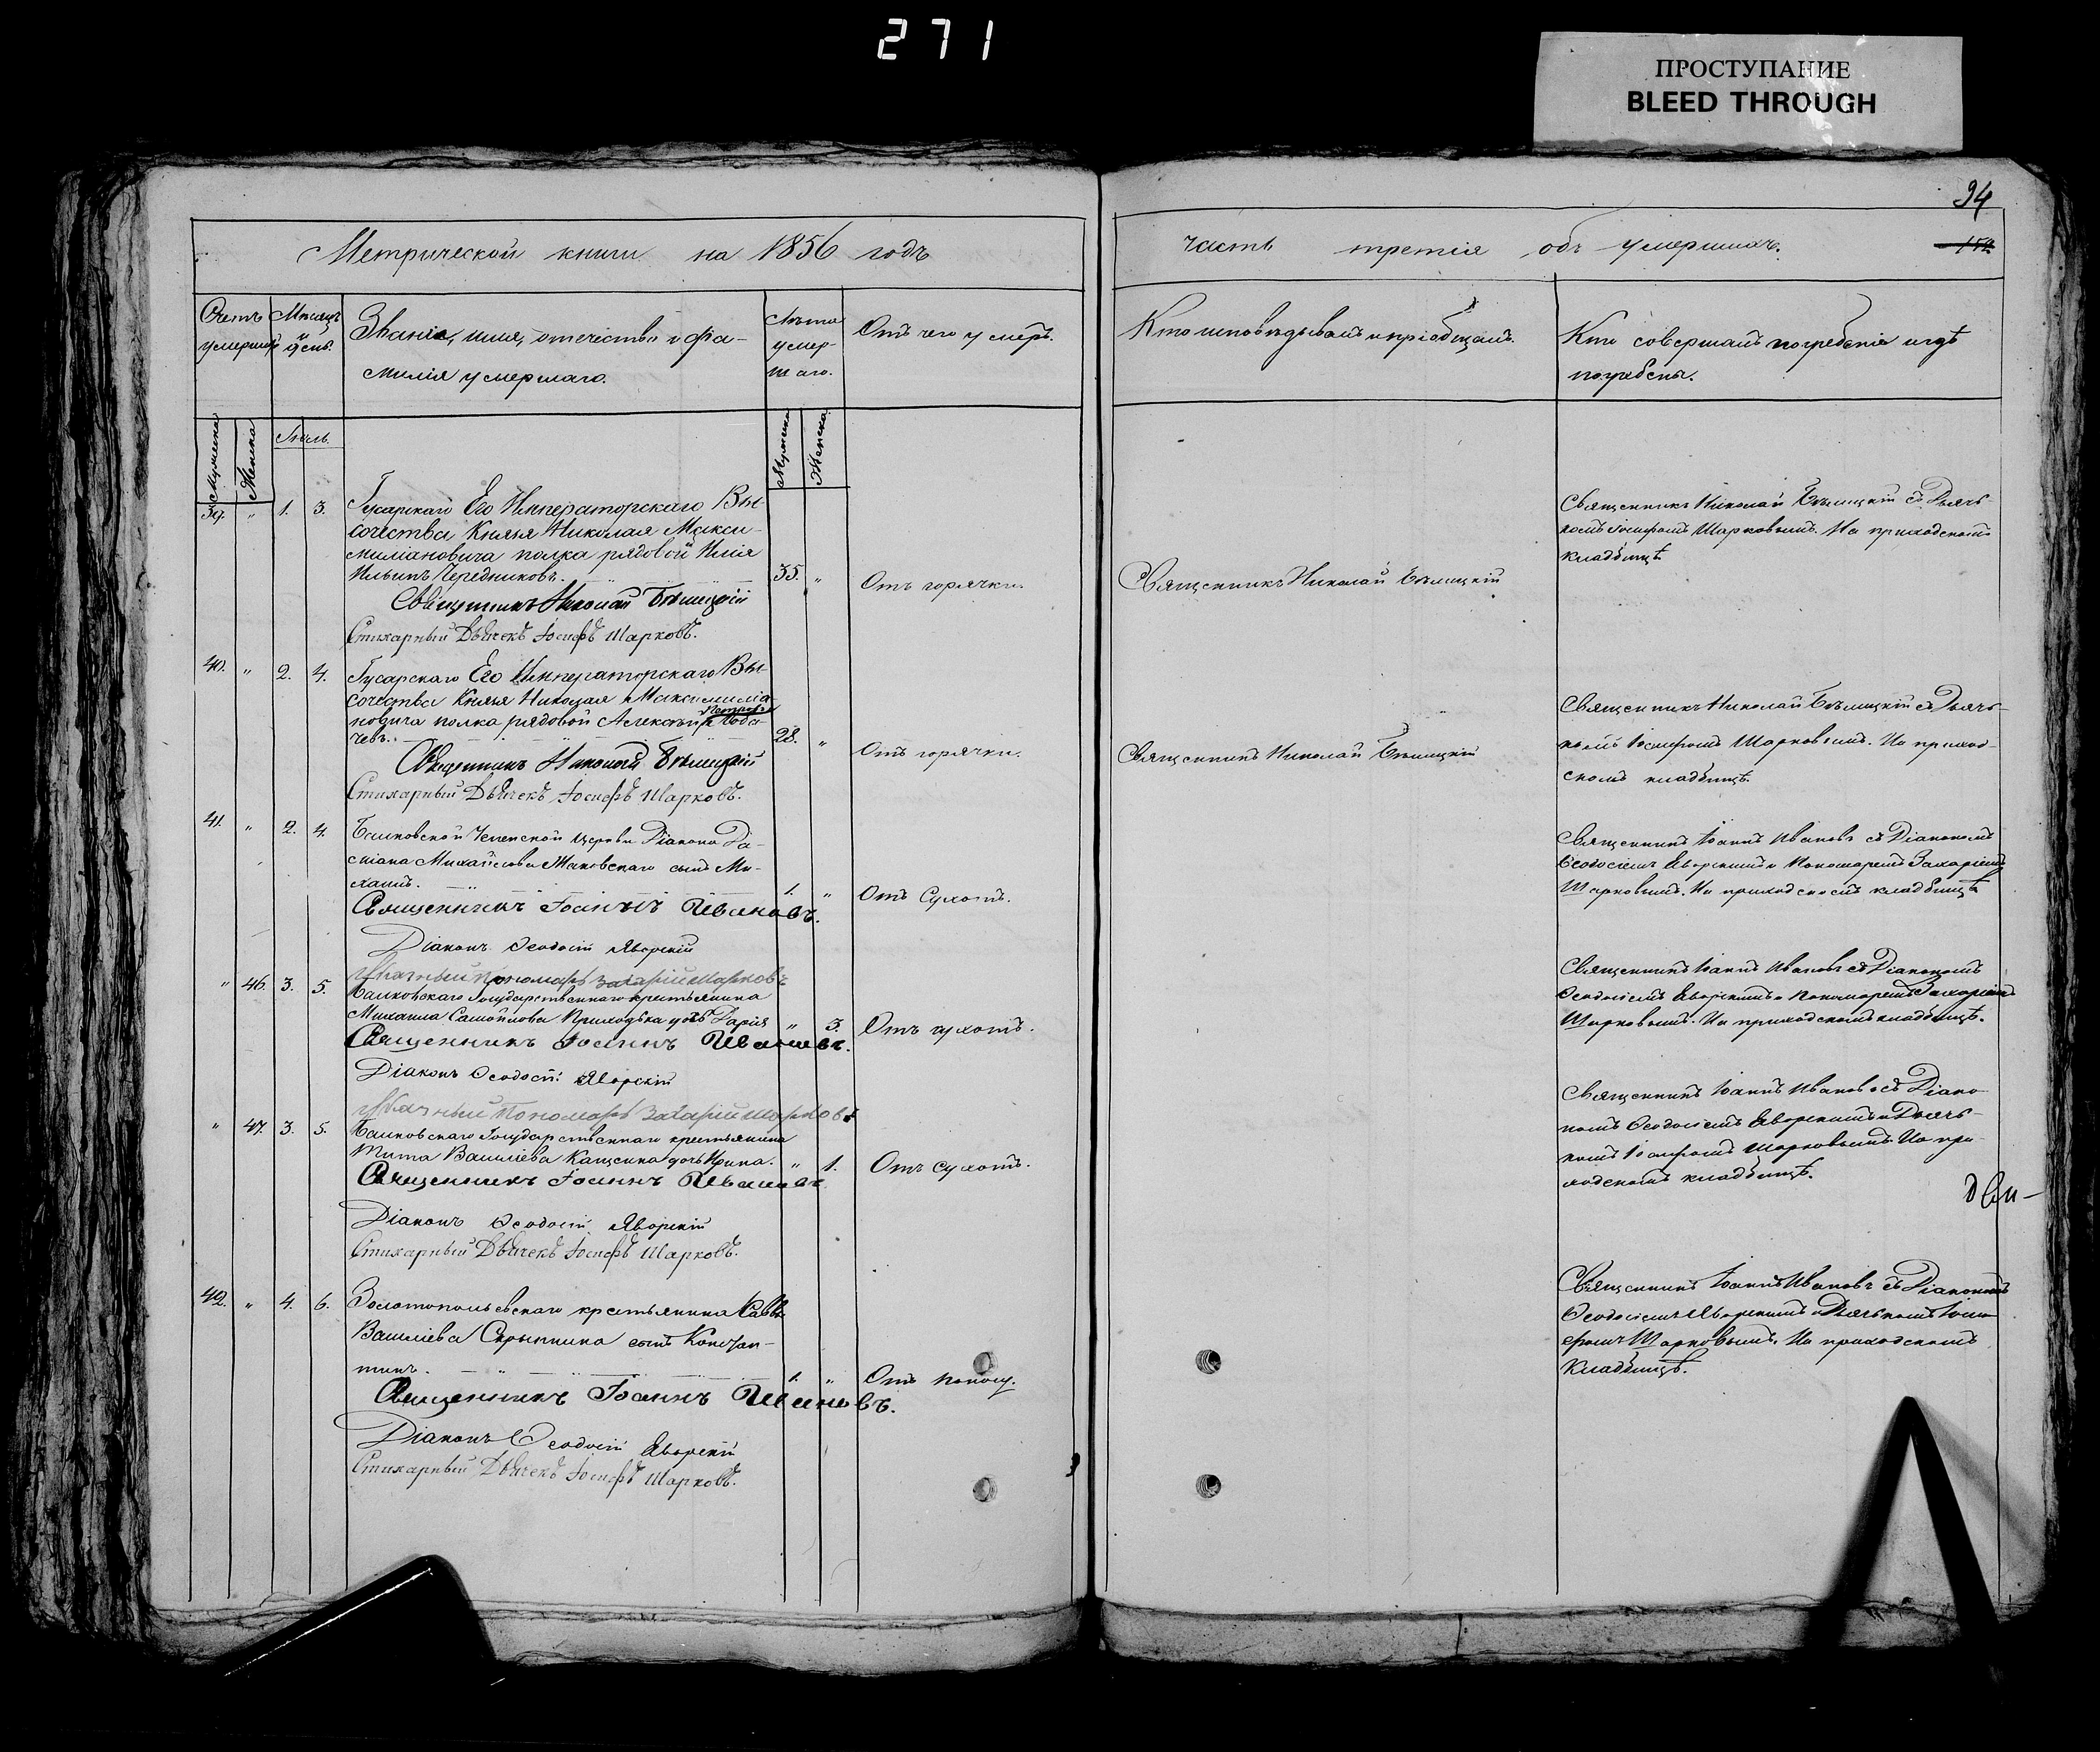 271
ПРОСТУПАНИЕ
BLEED THROUGH
94
Метрической книги на 1856 годъ
часть третія объ умершихъ.
Счетъ умершихъ
Мѣсяцъ и день.
Званіе, имя, отечество и фа-
милія умершаго.
Лѣта
умер-
шаго.
Отъ чего умеръ.
Кто исповѣдывалъ и пріобщалъ.
Кто совершалъ погребеніе и гдѣ
погребены.
Мужеска
Женска
Іюль.
Мужеска
Женска
39. " 1. 3. Гусарскаго Его Императорскаго Вы-
сочества Князя Николая Макси-
миліановича полка рядовой Илія
Ильинъ Чередниковъ. 35. " Отъ горячки.
Священникъ Николай Бѣлицкій
Стихарный Дьячекъ Іосифъ Шарковъ.
Священникъ Николай Бѣлицкій
Священникъ Николай Бѣлицкій съ Дьяч-
комъ Іосифомъ Шарковымъ. На приходскомъ
кладбищѣ
40. " 2. 4. Гусарскаго Его Императорскаго Вы-
сочества Князя Николая Максимиліа-
новича полка рядовой Алексѣй Петровъ Лоба-
чевъ. 28. " Отъ горячки.
Священникъ Николай Бѣлицкій
Стихарный Дьячекъ Іосифъ Шарковъ.
Священникъ Николай Бѣлицкій
Священникъ Николай Бѣлицкій съ Дьяч-
комъ Іосифомъ Шарковымъ. На приход-
скомъ кладбищѣ.
41. " 2. 4. Церкви Діакона Да-
міана Михайлова сынъ Ми-
хаилъ. 1. " Отъ Сухотъ.
Священникъ Іоаннъ Ивановъ.
Діаконъ Ѳеодосій Яворскій
Пономарь Захарій Шарковъ
Священникъ Іоаннъ Ивановъ съ Діакономъ
Ѳеодосіемъ Яворскимъ и Пономаремъ Захаріемъ
Шарковымъ. На приходскомъ кладбищѣ
" 46. 3. 5. Государственнаго крестьянина
Михаила Самойлова Приходька дочь Дарія " 3. Отъ сухотъ.
Священникъ Іоаннъ Ивановъ.
Діаконъ Ѳеодосій Яворскій
Пономарь Захарій Шарковъ
Священникъ Іоаннъ Ивановъ съ Діакономъ
Ѳеодосіемъ Яворскимъ и Пономаремъ Захаріемъ
Шарковымъ. На приходскомъ кладбищѣ.
" 47. 3. 5. Государственнаго крестьянина
Тита Василіева дочь Ирина. " 1. Отъ сухотъ.
Священникъ Іоаннъ Ивановъ
Діаконъ Ѳеодосій Яворскій
Стихарный Дьячекъ Іосифъ Шарковъ.
Священникъ Іоаннъ Ивановъ съ Діако-
номъ Ѳеодосіемъ Яворскимъ и Дьяч-
комъ Іосифомъ Шарковымъ. На при-
ходскомъ кладбищѣ.
42. " 4. 6. крестьянина Саввы
Василіева Скрыпника сынъ Констан-
тинъ. 1. " Отъ поносу.
Священникъ Іоаннъ Ивановъ.
Діаконъ Ѳеодосій Яворскій
Стихарный Дьячекъ Іосифъ Шарковъ.
Священникъ Іоаннъ Ивановъ съ Діакономъ
Ѳеодосіемъ Яворскимъ и Дьячкомъ Іоси-
фомъ Шарковымъ. На приходскомъ
кладбищѣ.